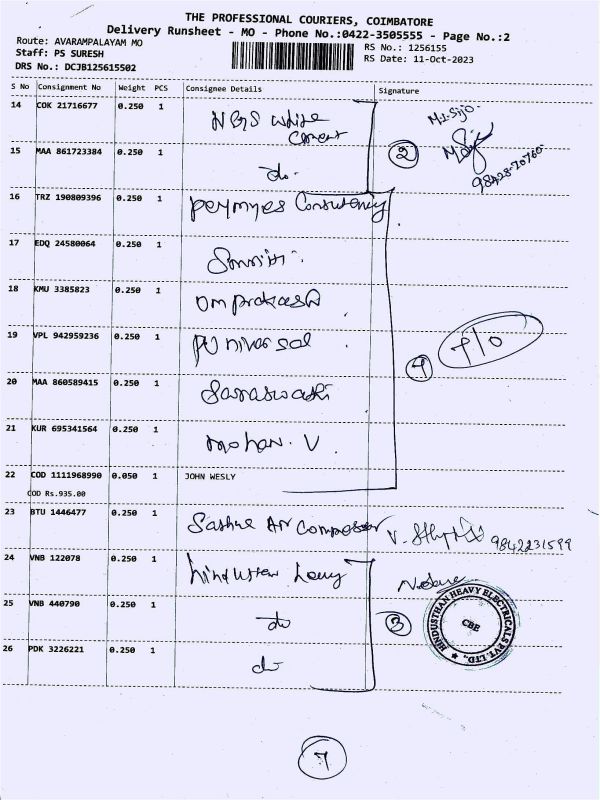 THE PROFESSIONAL COURIERS, COIMBATORE
Delivery Runsheet - MO - Phone No.:0422-3505555 - Page No.:2
Route: AVARAMPALAYAM MO
Staff: PS SURESH
DRS No.: DCJB125615502
RS No.: 1256155
RS Date: 11-Oct-2023
S No Consignment No Weight PCS Consignee Details Signature
14 COK 21716677 0.250 1 NBS white
Cement
Mr. Sijo.
98428-70760.
15 MAA 861723384 0.250 1 do.
2
16 TRZ 190809396 0.250 1 Consultency
17 EDQ 24580064 0.250 1
18 KMU 3385823 0.250 1 Om prakash
19 VPL 942959236 0.250 1 PUniversal
P/O
20 MAA 860589415 0.250 1 Saraswathi
21 KUR 695341564 0.250 1 Mohan. V.
22 COD 1111968990 0.050 1 JOHN WESLY
COD Rs.935.00
23 BTU 1446477 0.250 1 Air Compressor 9842231599
24 VNB 122078 0.250 1 hindustan heavy
25 VNB 440790 0.250 1 do
3
HINDUSTHAN HEAVY ELECTRICALS PVT. LTD.,
CBE
26 PDK 3226221 0.250 1 do
7